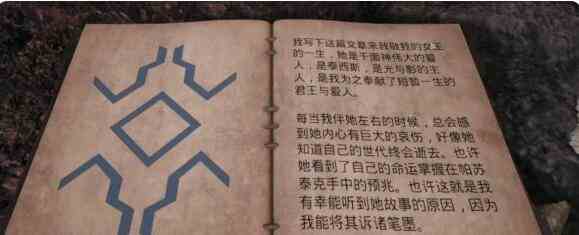 我写下这篇文章来纪念我的女王
的一生，她是千面神伟大的爱
人，是泰西斯，是光与影的主
人，是我为之奉献了短暂一生的
君王与爱人。
每当我伴她左右的时候，总会感
到她内心有巨大的哀伤，好像她
知道自己的世代终会逝去。也许
她看到了自己的命运掌握在帕苏
泰克手中的预兆。也许这就是我
有幸能听到她故事的原因，因为
我能将其诉诸笔墨。